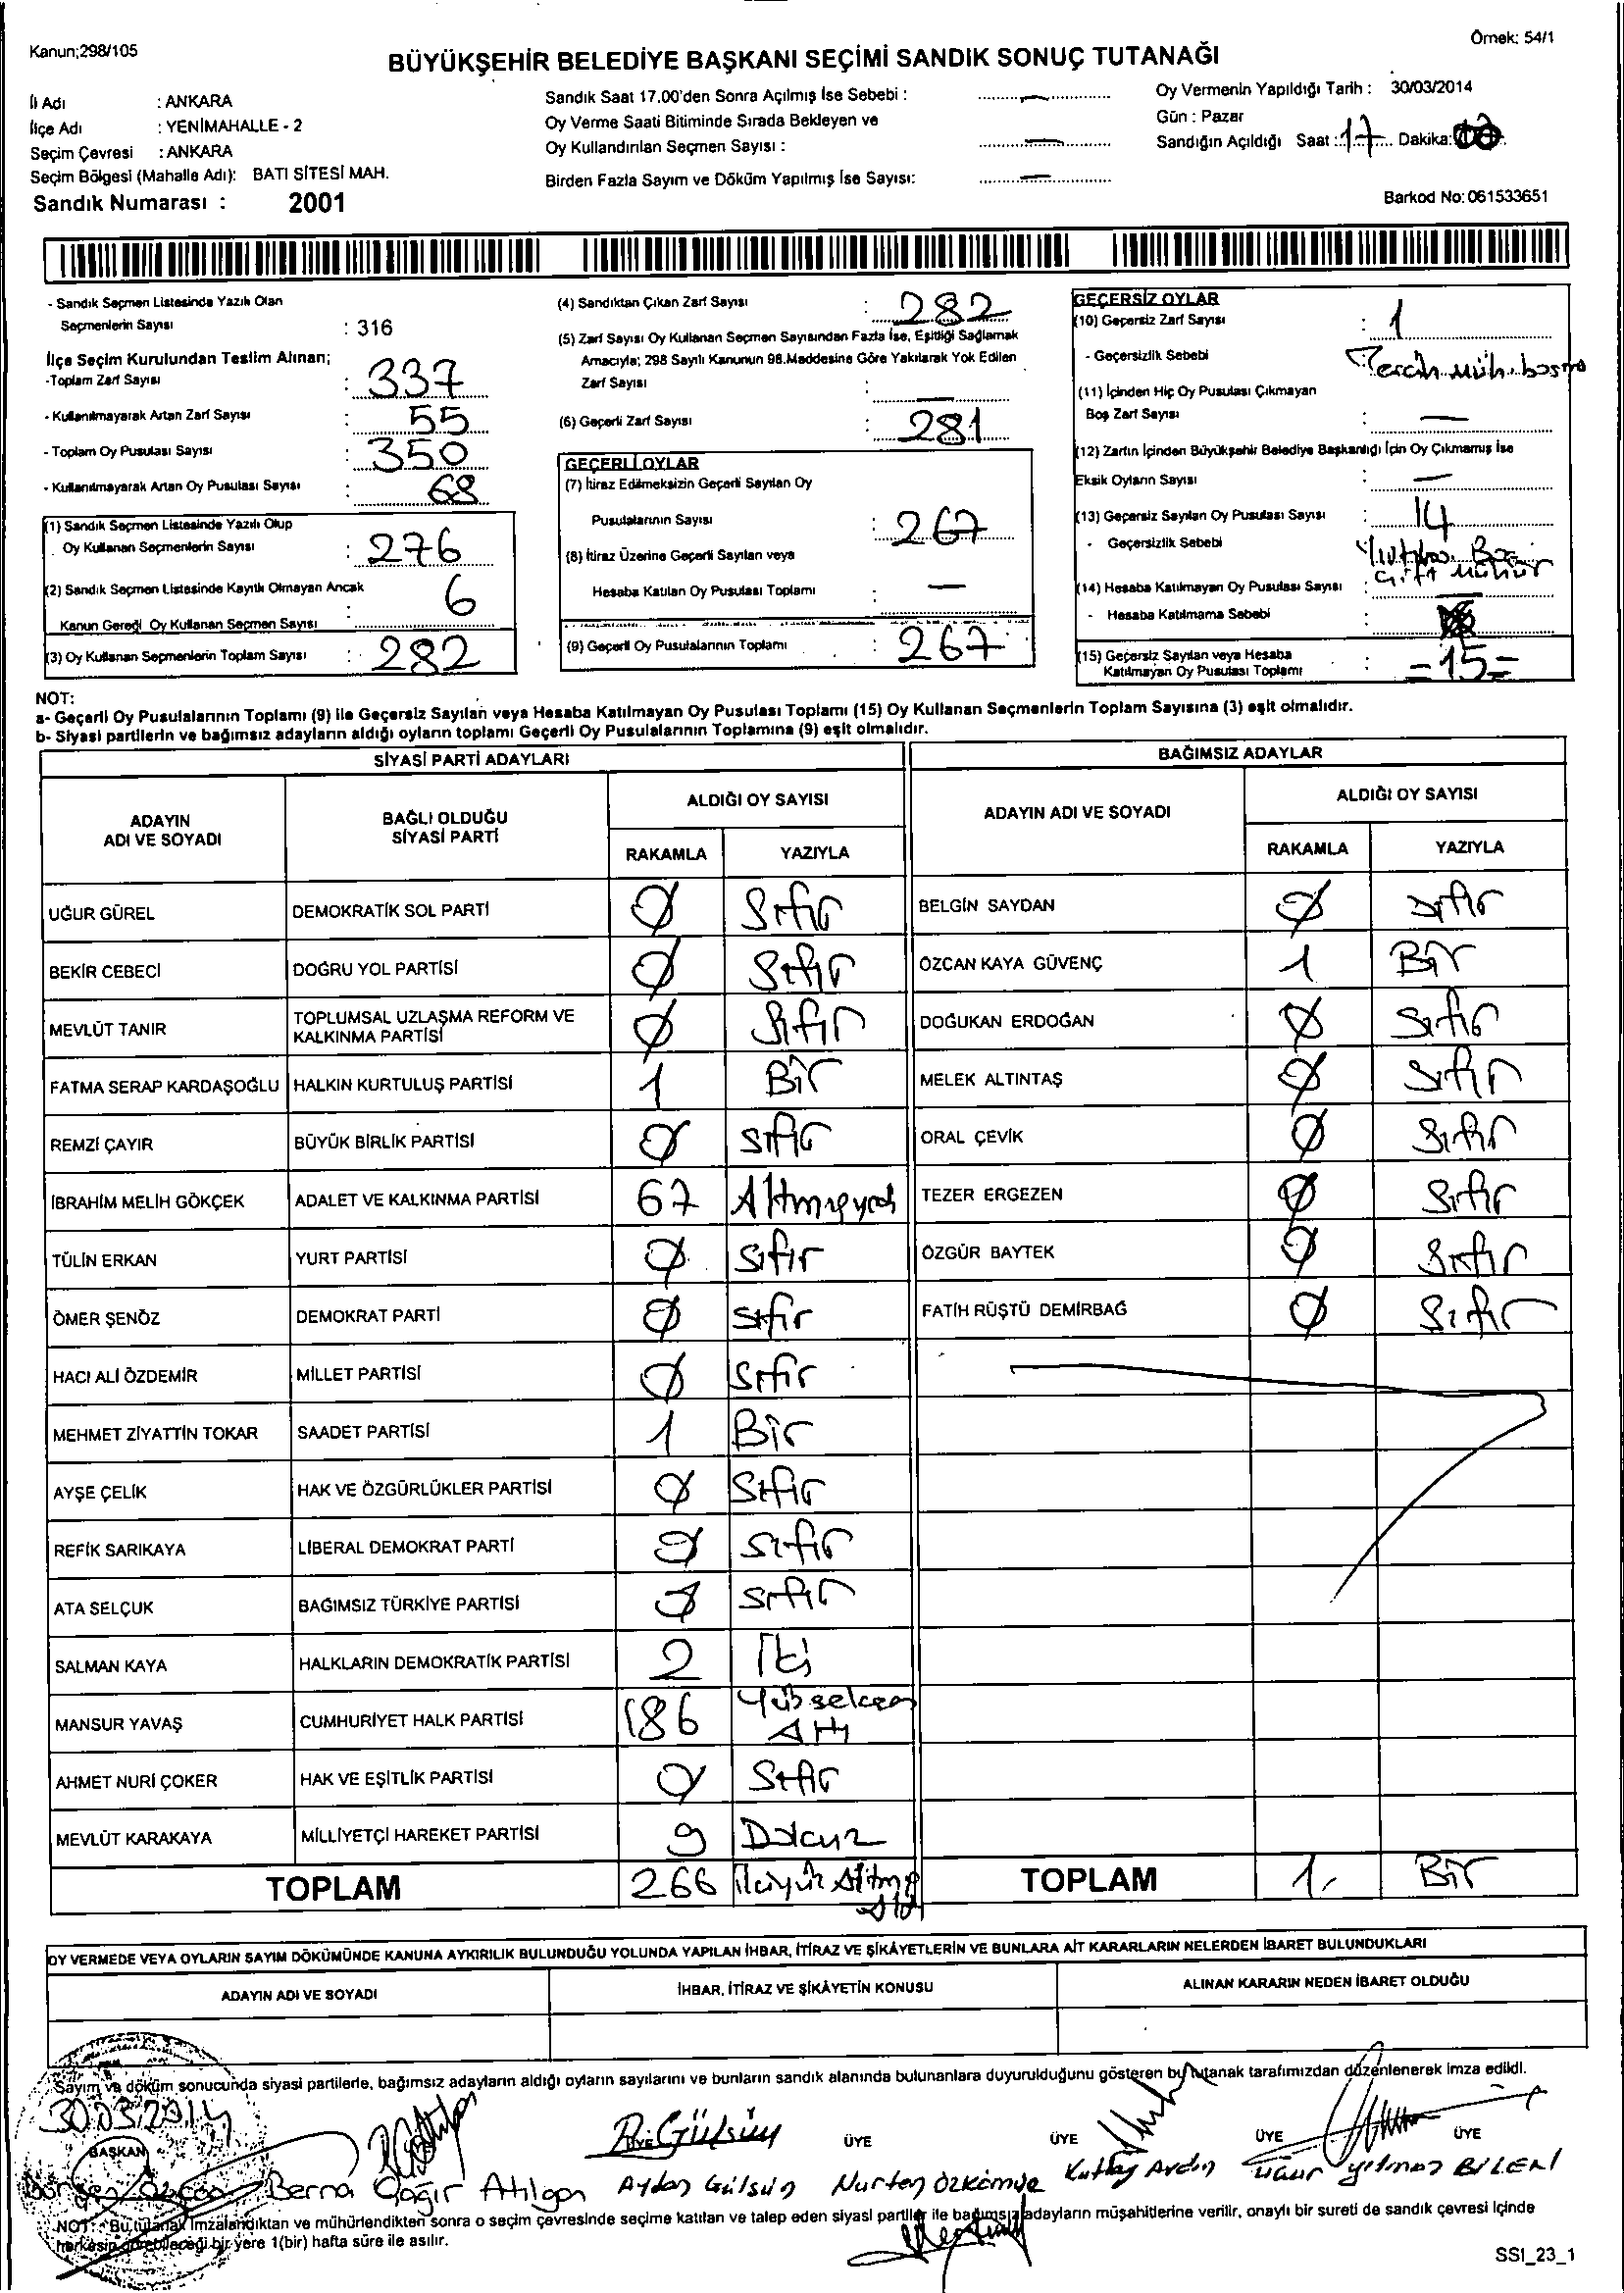 Kanun;298/105
Örnek: 54/1
BÜYÜKŞEHİR BELEDİYE BAŞKANI SEÇİMİ SANDIK SONUÇ TUTANAĞI
İli Adı : ANKARA
İlçe Adı : YENİMAHALLE - 2
Seçim Çevresi : ANKARA
Seçim Bölgesi (Mahalle Adı): BATI SİTESİ MAH.
Sandık Numarası : 2001
Sandık Saat 17.00'den Sonra Açılmış İse Sebebi : —
Oy Verme Saati Bitiminde Sırada Bekleyen ve
Oy Kullandırılan Seçmen Sayısı : —
Birden Fazla Sayım ve Döküm Yapılmış İse Sayısı: —
Oy Vermenin Yapıldığı Tarih : 30/03/2014
Gün : Pazar
Sandığın Açıldığı Saat : 17 Dakika:
Barkod No: 061533651
- Sandık Seçmen Listesinde Yazılı Olan
Seçmenlerin Sayısı : 316
İlçe Seçim Kurulundan Teslim Alınan;
-Toplam Zarf Sayısı : 337
- Kullanılmayarak Artan Zarf Sayısı : 55
- Toplam Oy Pusulası Sayısı : 350
- Kullanılmayarak Artan Oy Pusulası Sayısı : 68
(1) Sandık Seçmen Listesinde Yazılı Olup
Oy Kullanan Seçmenlerin Sayısı : 276
(2) Sandık Seçmen Listesinde Kayıtlı Olmayan Ancak
Kanun Gereği Oy Kullanan Seçmen Sayısı : 6
(3) Oy Kullanan Seçmenlerin Toplam Sayısı : 282
(4) Sandıktan Çıkan Zarf Sayısı : 282
(5) Zarf Sayısı Oy Kullanan Seçmen Sayısından Fazla İse, Eşitliği Sağlamak
Amacıyla; 298 Sayılı Kanunun 98.Maddesine Göre Yakılarak Yok Edilen
Zarf Sayısı : —
(6) Geçerli Zarf Sayısı : 281
GEÇERLİ OYLAR
(7) İtiraz Edilmeksizin Geçerli Sayılan Oy
Pusulalarının Sayısı : 267
(8) İtiraz Üzerine Geçerli Sayılan veya
Hesaba Katılan Oy Pusulası Toplamı : —
(9) Geçerli Oy Pusulalarının Toplamı : 267
GEÇERSİZ OYLAR
(10) Geçersiz Zarf Sayısı : 1
- Geçersizlik Sebebi Tercih müh.
(11) İçinden Hiç Oy Pusulası Çıkmayan
Boş Zarf Sayısı : —
(12) Zarfın İçinden Büyükşehir Belediye Başkanlığı İçin Oy Çıkmamış İse
Eksik Oyların Sayısı : —
(13) Geçersiz Sayılan Oy Pusulası Sayısı : 14
- Geçersizlik Sebebi
Çift Mühür
(14) Hesaba Katılmayan Oy Pusulası Sayısı : —
- Hesaba Katılmama Sebebi :
(15) Geçersiz Sayılan veya Hesaba
Katılmayan Oy Pusulası Toplamı : =15=
NOT:
a- Geçerli Oy Pusulalarının Toplamı (9) ile Geçersiz Sayılan veya Hesaba Katılmayan Oy Pusulası Toplamı (15) Oy Kullanan Seçmenlerin Toplam Sayısına (3) eşit olmalıdır.
b- Siyasi partilerin ve bağımsız adayların aldığı oyların toplamı Geçerli Oy Pusulalarının Toplamına (9) eşit olmalıdır.
SİYASİ PARTİ ADAYLARI
BAĞIMSIZ ADAYLAR
ADAYIN ADI VE SOYADI
BAĞLI OLDUĞU SİYASİ PARTİ
ALDIĞI OY SAYISI
RAKAMLA YAZIYLA
ADAYIN ADI VE SOYADI
ALDIĞI OY SAYISI
RAKAMLA YAZIYLA
UĞUR GÜREL DEMOKRATİK SOL PARTİ Ø Sıfır BELGİN SAYDAN Ø Sıfır
BEKİR CEBECİ DOĞRU YOL PARTİSİ Ø Sıfır ÖZCAN KAYA GÜVENÇ 1 Bir
MEVLÜT TANIR TOPLUMSAL UZLAŞMA REFORM VE KALKINMA PARTİSİ Ø Sıfır DOĞUKAN ERDOĞAN Ø Sıfır
FATMA SERAP KARDAŞOĞLU HALKIN KURTULUŞ PARTİSİ 1 Bir MELEK ALTINTAŞ Ø Sıfır
REMZİ ÇAYIR BÜYÜK BİRLİK PARTİSİ Ø Sıfır ORAL ÇEVİK Ø Sıfır
İBRAHİM MELİH GÖKÇEK ADALET VE KALKINMA PARTİSİ 67 Altmışyedi TEZER ERGEZEN Ø Sıfır
TÜLİN ERKAN YURT PARTİSİ Ø Sıfır ÖZGÜR BAYTEK Ø Sıfır
ÖMER ŞENÖZ DEMOKRAT PARTİ Ø Sıfır FATİH RÜŞTÜ DEMİRBAĞ Ø Sıfır
HACI ALİ ÖZDEMİR MİLLET PARTİSİ Ø Sıfır
MEHMET ZİYATTİN TOKAR SAADET PARTİSİ 1 Bir
AYŞE ÇELİK HAK VE ÖZGÜRLÜKLER PARTİSİ Ø Sıfır
REFİK SARIKAYA LİBERAL DEMOKRAT PARTİ Ø Sıfır
ATA SELÇUK BAĞIMSIZ TÜRKİYE PARTİSİ Ø Sıfır
SALMAN KAYA HALKLARIN DEMOKRATİK PARTİSİ 2 İki
MANSUR YAVAŞ CUMHURİYET HALK PARTİSİ 186 Yüzseksen Altı
AHMET NURİ ÇOKER HAK VE EŞİTLİK PARTİSİ Ø Sıfır
MEVLÜT KARAKAYA MİLLİYETÇİ HAREKET PARTİSİ 9 Dokuz
TOPLAM 266 İkiyüz Altmış Altı TOPLAM 1 Bir
OY VERMEDE VEYA OYLARIN SAYIM DÖKÜMÜNDE KANUNA AYKIRILIK BULUNDUĞU YOLUNDA YAPILAN İHBAR, İTİRAZ VE ŞİKÂYETLERİN VE BUNLARA AİT KARARLARIN NELERDEN İBARET BULUNDUKLARI
ADAYIN ADI VE SOYADI İHBAR, İTİRAZ VE ŞİKÂYETİN KONUSU ALINAN KARARIN NEDEN İBARET OLDUĞU
Sayım ve döküm sonucunda siyasi partilerle, bağımsız adayların aldığı oyların sayılarını ve bunların sandık alanında bulunanlara duyurulduğunu gösteren bu tutanak tarafımızdan düzenlenerek imza edildi.
30.03.2014
BAŞKAN ÜYE ÜYE ÜYE ÜYE ÜYE
Berna Çağır Atılgan Aydan Gülsün Nurten Özkömür Kutlay Aydın Uğur Yılmaz BİLENİ
NOT: Bu tutanak imzalandıktan ve mühürlendikten sonra o seçim çevresinde seçime katılan ve talep eden siyasi partiler ile bağımsız adayların müşahitlerine verilir, onaylı bir sureti de sandık çevresi içinde
herkesin görebileceği bir yere 1(bir) hafta süre ile asılır.
SSI_23_1